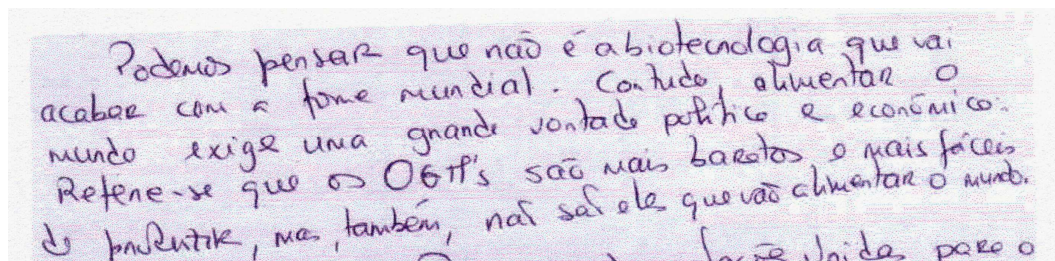 Podemos pensar que não é a biotecnologia que vai
acabar com a fome mundial. Contudo, alimentar o
mundo exige uma grande vontade política e económica.
Refere-se que os OGM's são mais baratos e mais fáceis
de produzir, mas, também, não são eles que vão alimentar o mundo.
Unidas para o